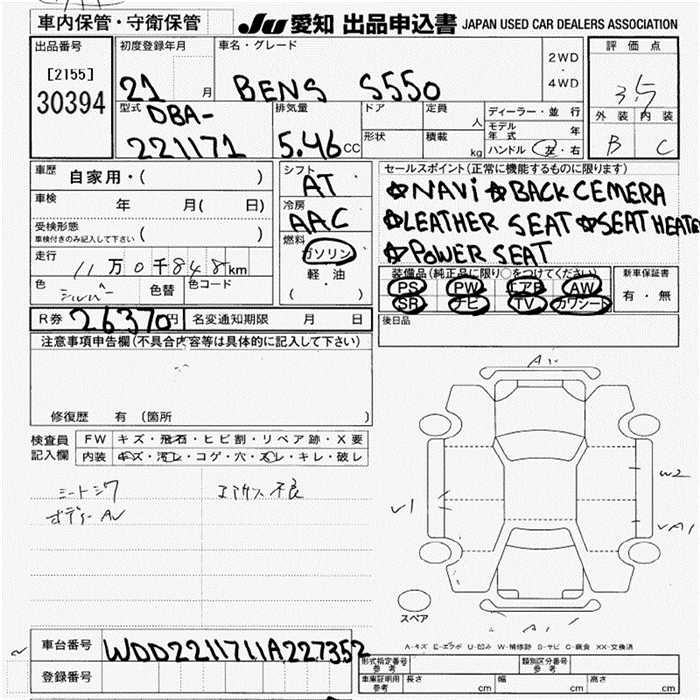 車内保管・守衛保管 JU 愛知 出品申込書 JAPAN USED CAR DEALERS ASSOCIATION
出品番号 初度登録年月 車名・グレード 評価点
[2155] 2WD
30394 21 月 BENS S550 4WD 3.5
型式 排気量 ドア 定員 ディーラー・並行 外装 内装
DBA- 人 モデル年式 年
221171 5.46 CC 形状 積載 kg ハンドル 左・右 B C
車歴 自家用・( ) シフト セールスポイント(正常に機能するものに限ります)
AT ☆NAVi ☆BACK CEMERA
車検 年 月( 日) 冷房
AAC ☆LEATHER SEAT ☆SEAT HEATE
受検形態
車検付きのみ記入して下さい ( ) 燃料
ガソリン ☆POWER SEAT
走行 11万0千848km 軽油 装備品(純正品に限り○をつけてください) 新車保証書
色 シルバー 色替 色コード ( ) PS PW エアB AW 有・無
SR ナビ TV カワシート
R券 26370円 名変通知期限 月 日 後日品
注意事項申告欄(不具合内容等は具体的に記入して下さい)
A1
修復歴 有 (箇所 )
検査員 FW キズ・飛石・ヒビ割・リペア跡・X要
記入欄 内装 キズ・汚レ・コゲ・穴・スレ・キレ・破レ
W2
シートシワ エアサス不良
ボディーAV V1 VA1
スペア A1
A-キズ E-エクボ U-凹み W-補修跡 S-サビ C-腐食 XX-交換済
車台番号 WDD2211711A227352
形式指定番号 参考 類別区分番号 参考
登録番号 車庫証明用 参考 長さ cm 幅 cm 高さ cm